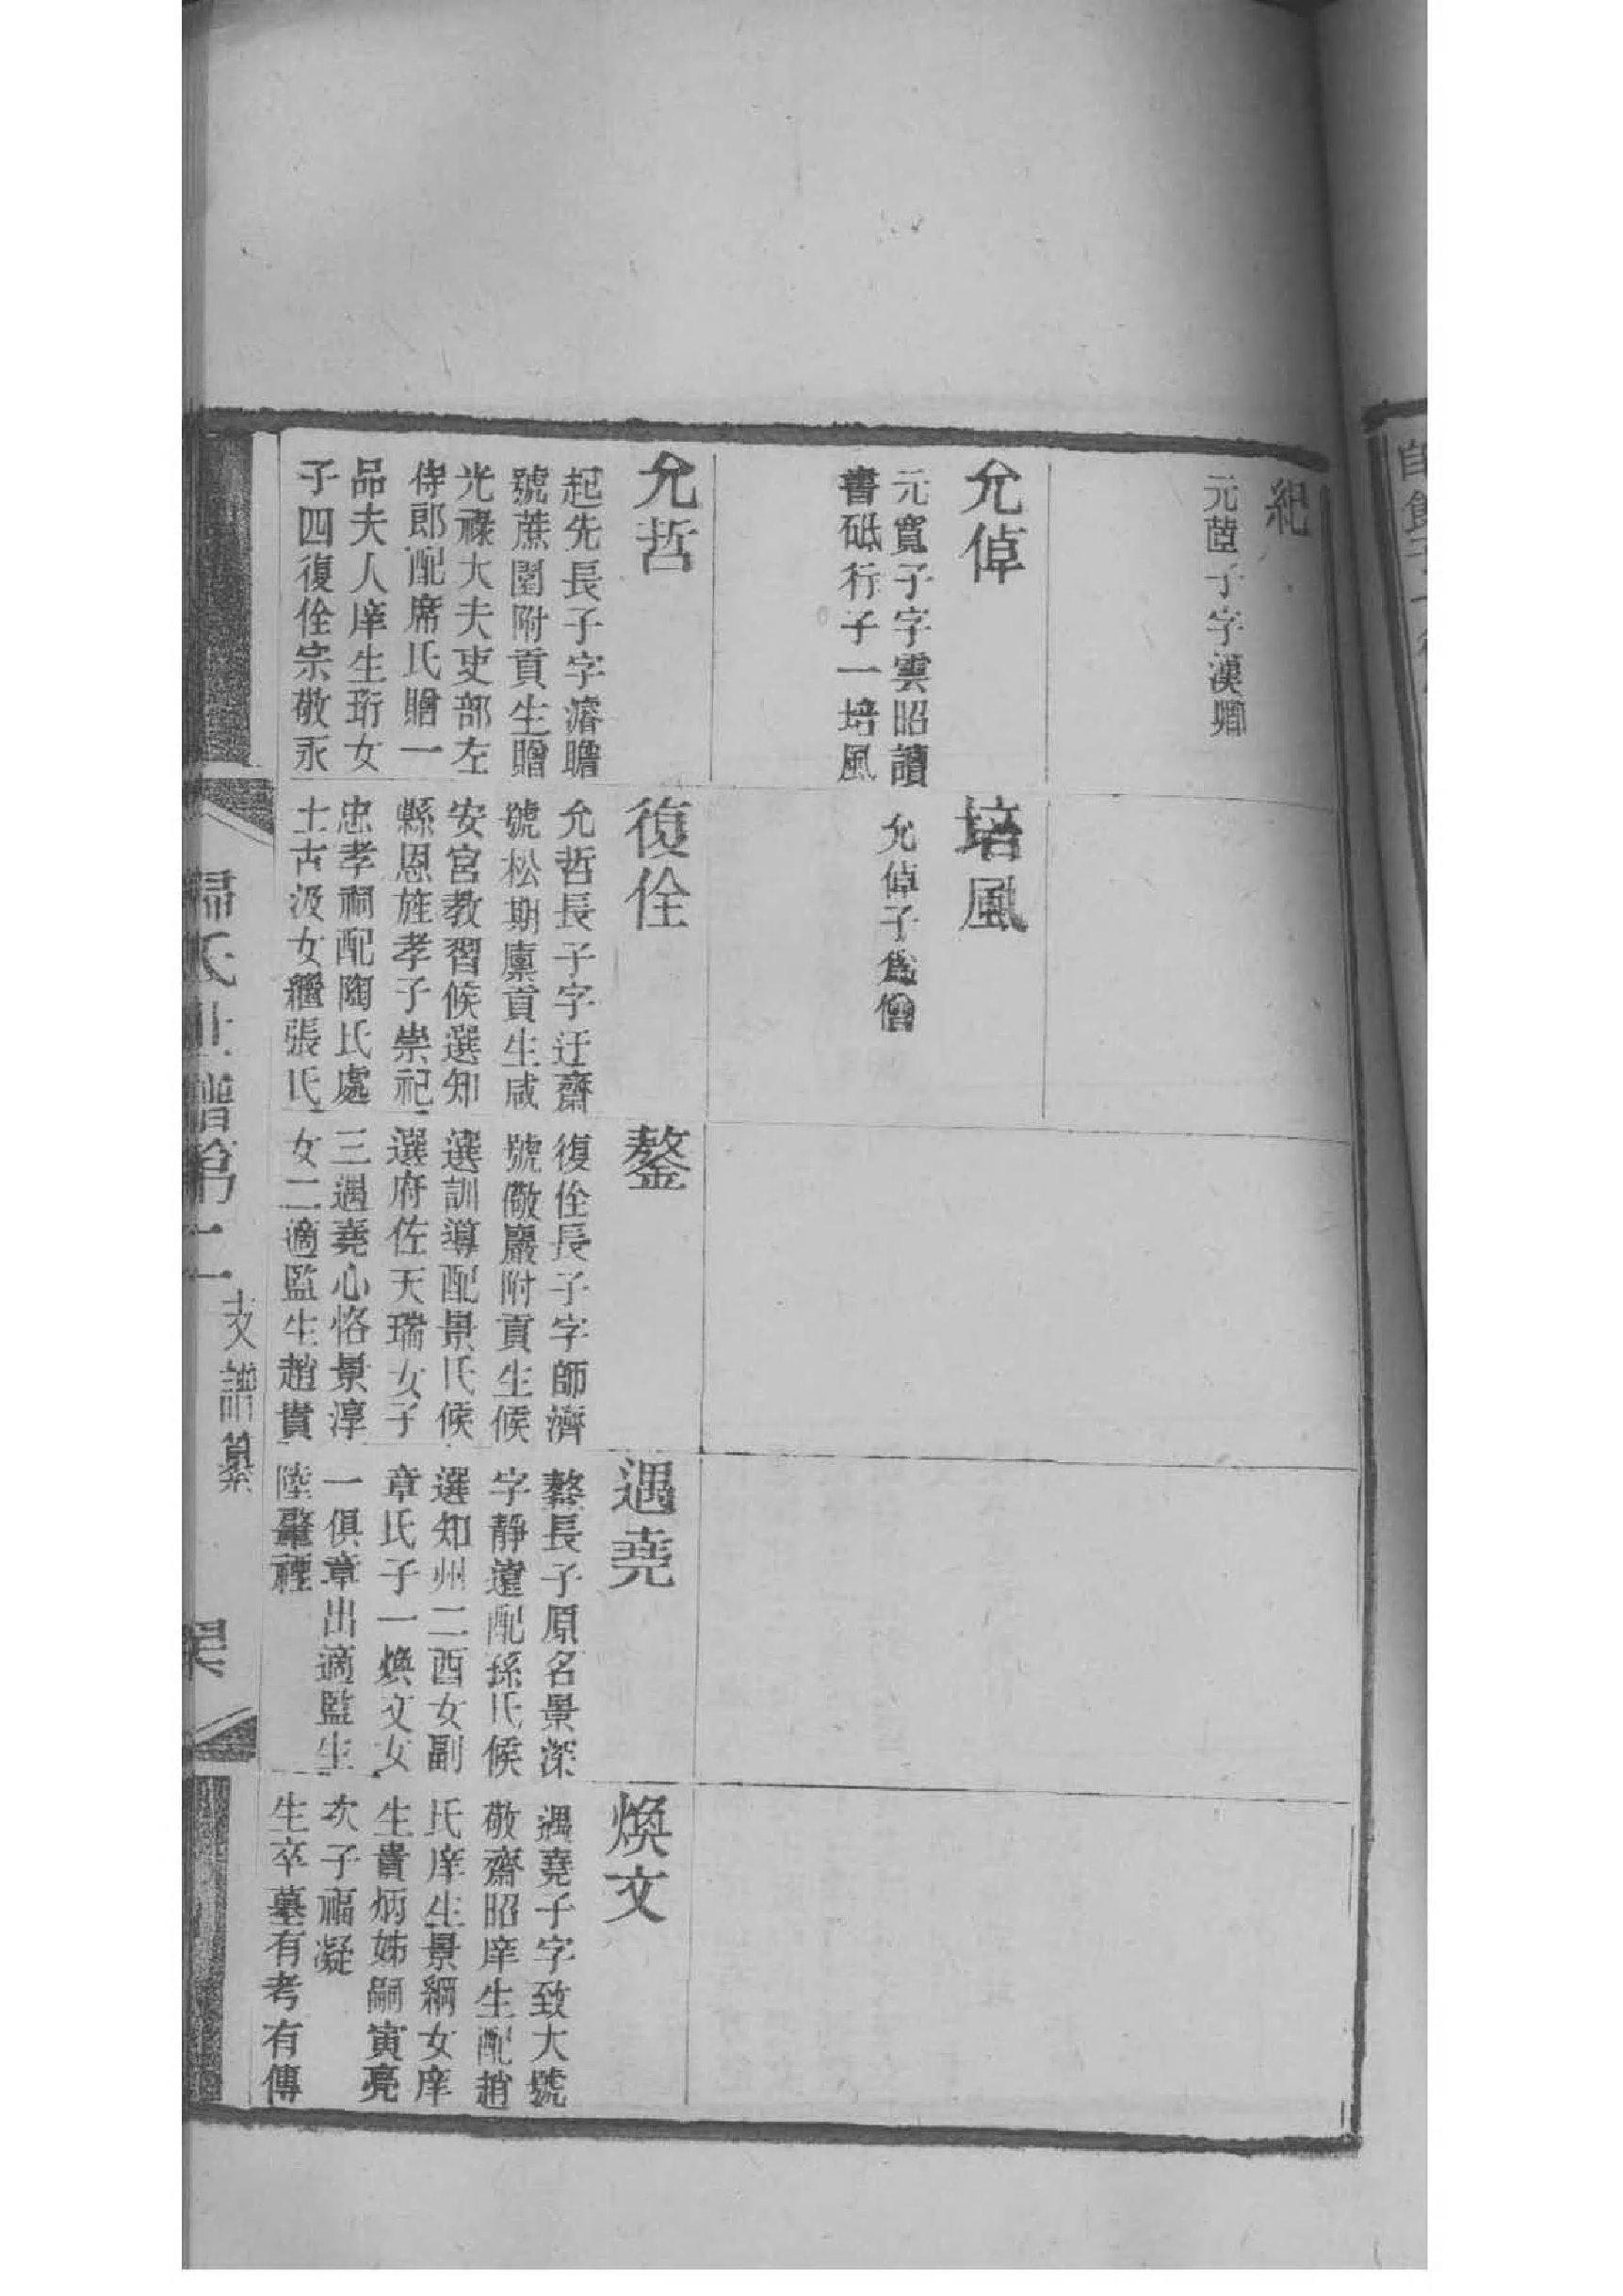 紀
元𦳝子字漢卿
允倬
元寬子字雲昭讀
書砥行子一培風
培風
允倬子為僧
允哲
起先長子字濬瞻
號蔗園附貢生贈
光祿大夫吏部左
侍郎配席氏贈一
品夫人庠生珩女
子四復佺宗敬永
復佺
允哲長子字迂齋
號松期廩貢生咸
安宮教習候選知
縣恩旌孝子崇祀
忠孝祠配陶氏處
士古汲女繼張氏
鏊
復佺長子字師濟
號儆巖附貢生候
選訓導配景氏候
選府佐天瑞女子
三遇堯心恪景淳
女二適監生趙貴
遇堯
鏊長子原名景深
字靜遠配孫氏候
選知州二酉女副
章氏子一煥文女
一俱章出適監生
陸肇禋
煥文
遇堯子字致大號
敬齋昭庠生配趙
氏庠生景綱女庠
生貴炳姊嗣寅亮
次子福凝
生卒墓有考有傳
氏世譜第
支譜纂